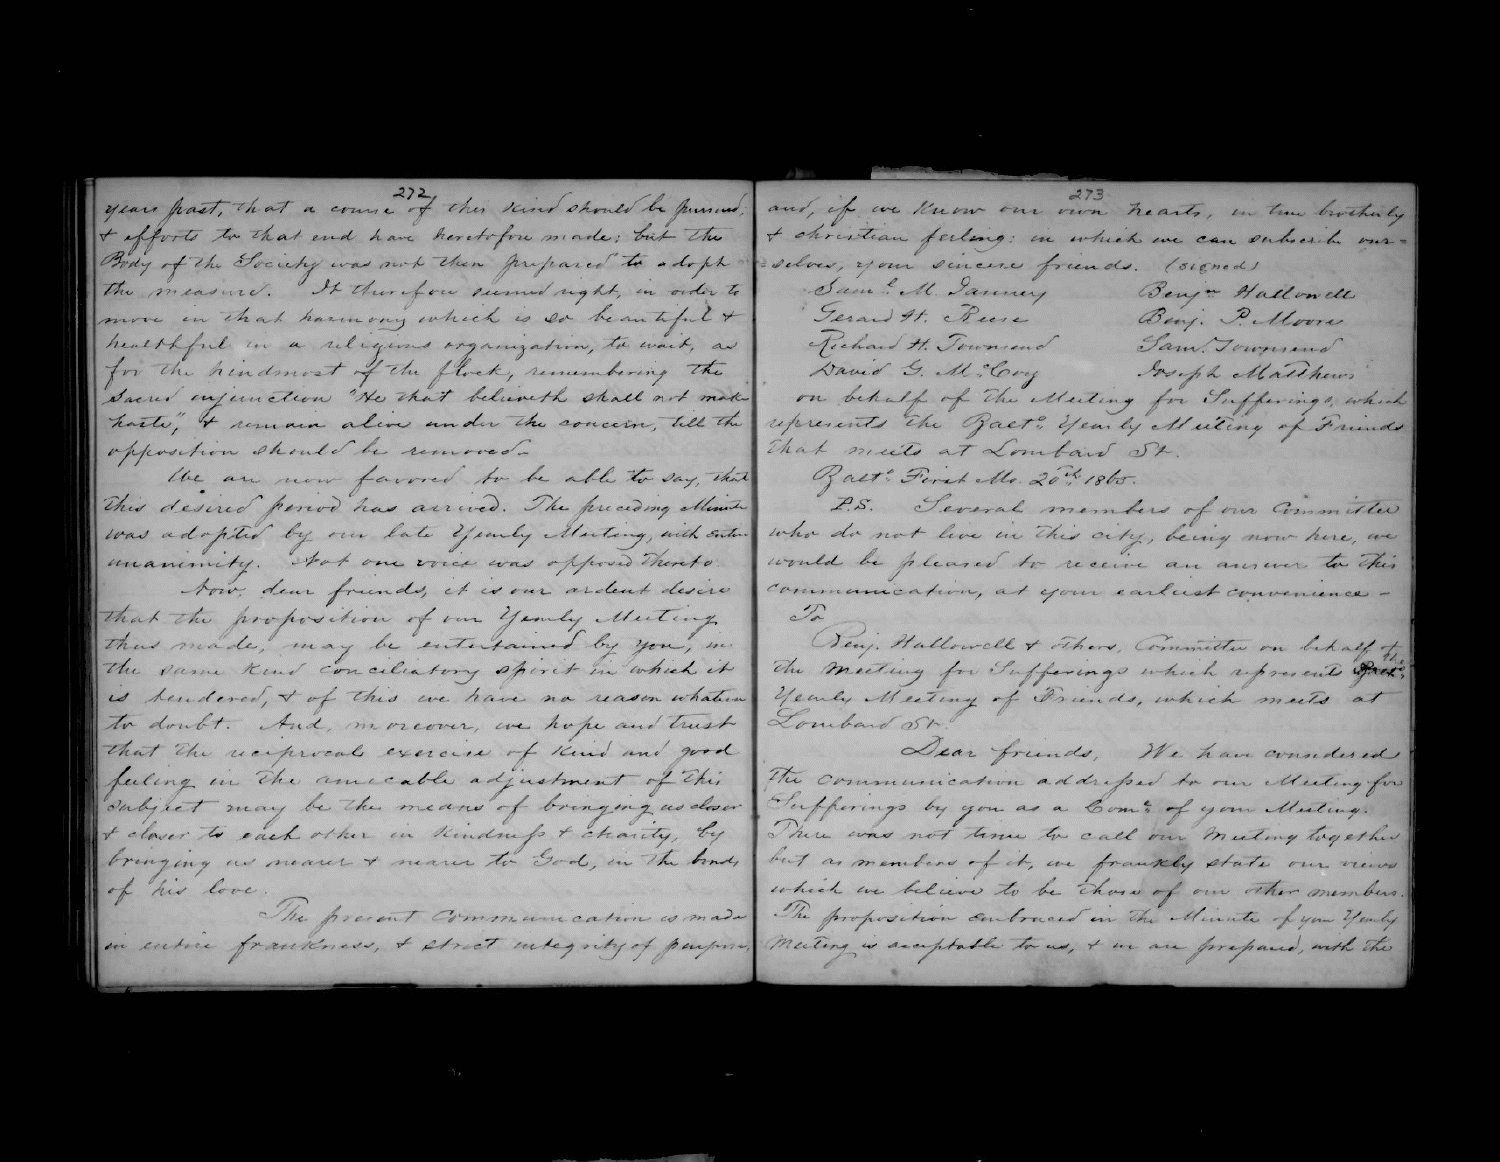 272
years past, that a course of this kind should be pursued,
& efforts to that end have heretofore made; but the
Body of the Society was not then prepared to adopt
the measure. It therefore seemed right, in order to
move in that harmony which is so beautiful &
healthful in a religious organization, to wait, as
for the hindmost of the flock, remembering the
sacred injunction "He that believeth shall not make
haste", & remain alive under the concern, till the
opposition should be removed-
We are now favored to be able to say, that
this desired period has arrived. The preceding Minute
was adopted by our late Yearly Meeting, with entire
unanimity. Not one voice was opposed thereto
Now, dear friends, it is our ardent desire
that the proposition of our Yearly Meeting
thus made, may be entertained by you, in
the same kind conciliatory spirit in which it
is tendered, & of this we have no reason whatever
to doubt. And, moreover, we hope and trust
that the reciprocal exercise of kind and good
feeling in the amicable adjustment of this
subject may be the means of bringing us closer
& closer to each other in kindness & charity, by
bringing us nearer & nearer to God, in the bonds
of his love.
The present communication is made
in entire frankness, & strict integrity of purpose,
273
and, if we know our own hearts, in true brotherly
& christian feeling: in which we can subscribe our=
=selves, your sincere friends. (signed)
Saml. M. Janney Benjn Hallowell
Gerard H. Reese Benj. P. Moore
Richard H. Townsend Saml. Townsend
David G. McCoy Joseph Matthews
on behalf of the Meeting for Sufferings, which
represents the Balto. Yearly Meeting of Friends
that meets at Lombard St.
Balto. First Mo. 20th. 1865.
P.S. Several members of our Committee
who do not live in this city, being now here, we
would be pleased to receive an answer to this
communication, at your earliest convenience -
To
Benj. Hallowell & others, Committee on behalf of
the meeting for Sufferings which represent the Balto.
Yearly Meeting of Friends, which meets at
Lombard St.
Dear friends, We have considered
the communication addressed to our Meeting for
Sufferings by you as a Come. of your Meeting.
There was not time to call our Meeting together
but as members of it, we frankly state our views
which we believe to be those of our other members.
The proposition embraced in the Minute of your Yearly
Meeting is acceptable to us, & we are prepared, with the